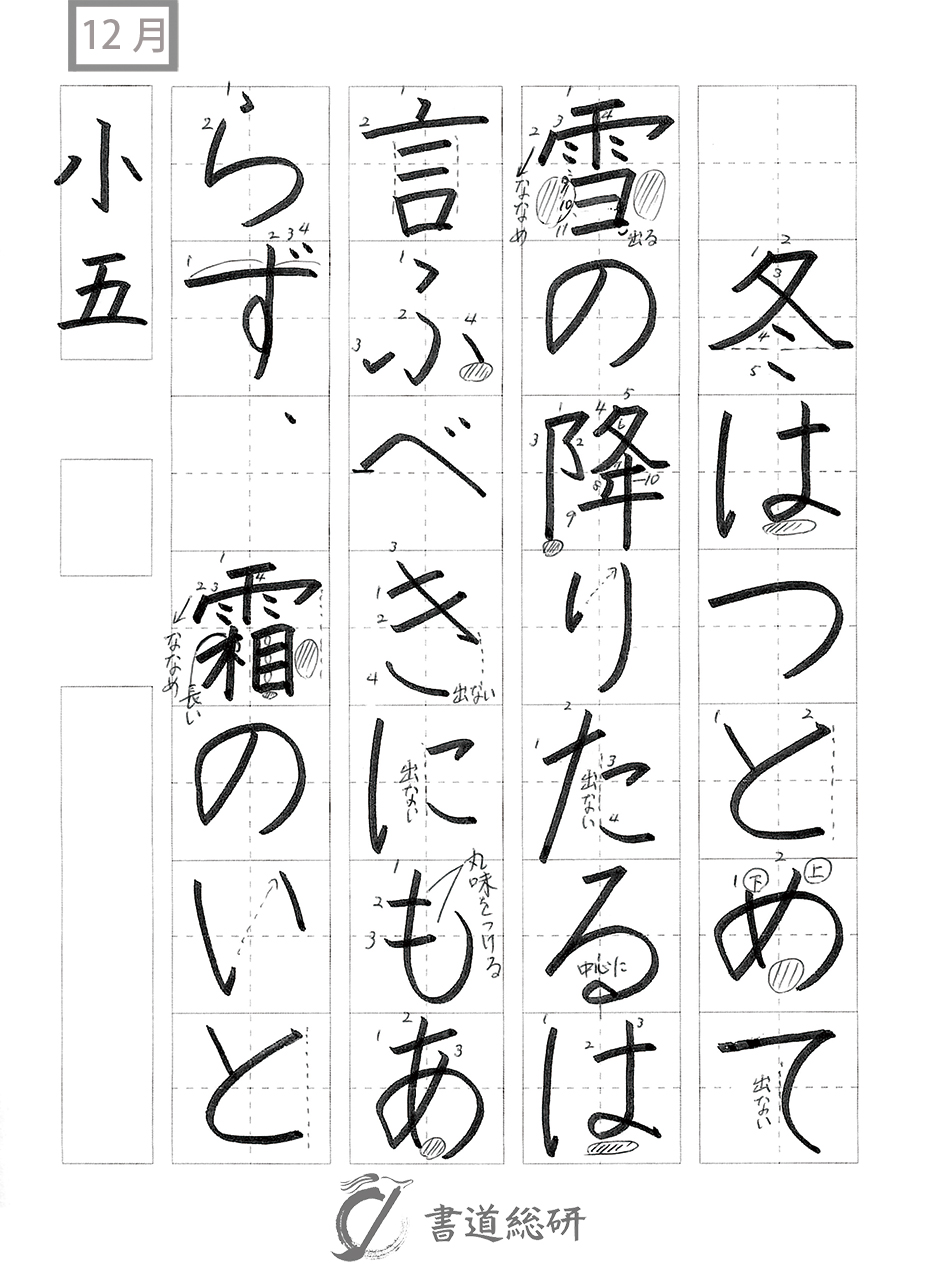 12月
冬はつとめて
雪の降りたるは
言ふべきにもあ
らず、霜のいと
小五
ななめ
出る
出ない
中心に
出ない
出ない
丸味をつける
ななめ
長い
下
上
出ない
書道総研